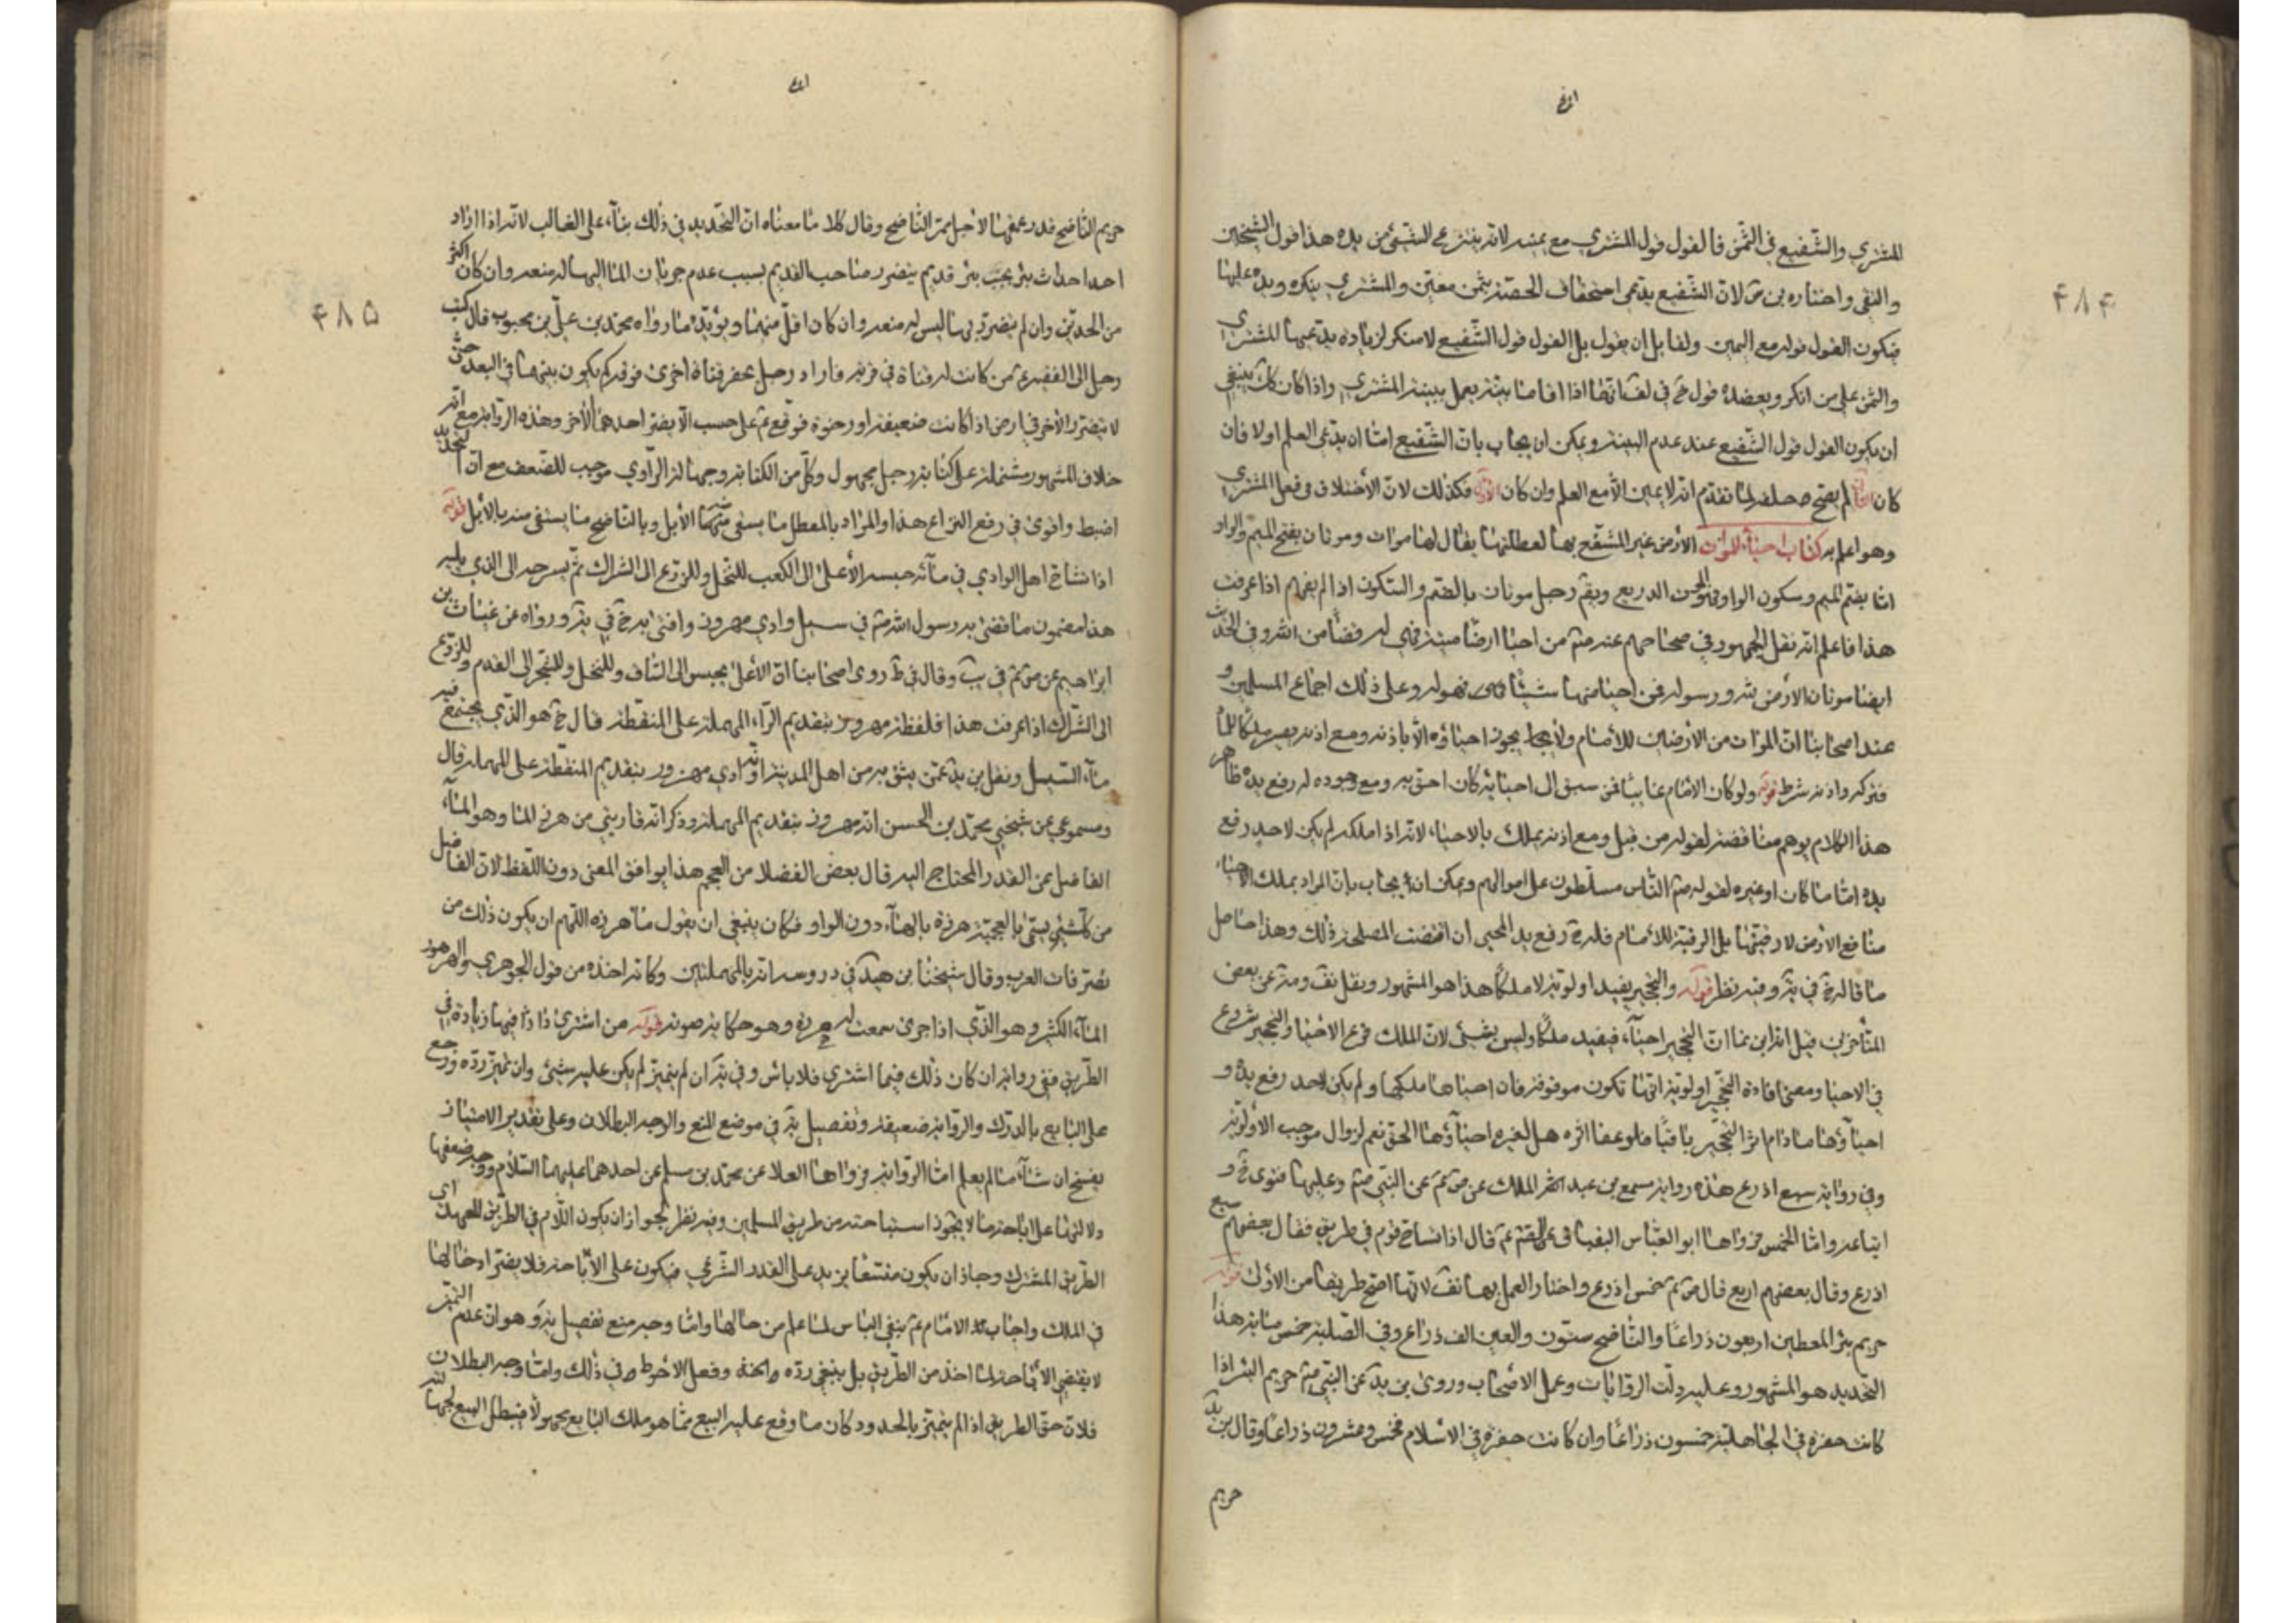 المشتري والشفيع في الثمن فالقول قول المشتري مع يمينه لانه ينتزع الشيئ من يده هذا قول الشيخين
والتقي واختاره بن س لان الشفيع يدعي استحقاق الحصة بثمن معين والمشتري ينكره ويده عليها
فيكون القول قوله مع اليمين ولقايل ان يقول بل القول قول الشفيع لانه منكر لزيادة يدعيها المشتري
والثمن على من انكر ويعضده قول خ في ف انهما اذا اقاما بينة يعمل ببينة المشتري واذا كان كك ينبغي
ان يكون القول قول الشفيع عند عدم البينة ويمكن ان يجاب بان الشفيع امّا ان يدعي العلم اولا فان
كان لم يصح حلفه لما تقدم انه لا يمين الا مع العلم وان كان فكذلك لان الأختلاف في فعل المشتري
وهو اعلم به كتاب احياء الموات الأرض غير المنتفع بها لعطلتها يقال لها موات وموتان بفتح الميم والواو
امّا بضم الميم وسكون الواو فالموت الذريع ويقم رجل موتان بالضم والسكون اذا لم يفهم اذا عرفت
هذا فاعلم انه نقل الجمهور في صحاحهم عنه صم من احيا ارضا ميتة فهي له قضأ من الله وفي الحديث
ايضا موتان الأرض لله ورسوله فمن احيا منها شيئا فهو له وعلى ذلك اجماع المسلمين و
عند اصحابنا ان الموات من الأرضين للأمام ولا يجوز احياؤه الا باذنه ومع اذنه يصير ملكا للمحيي
فتركه واذنه شرط قوله ولو كان الامام غايبا فمن سبق الى احيائه كان احق به ومع وجوده له رفع يده ظاهر
هذا الكلام يوهم مناقضة لقوله من قبل ومع اذنه يملك بالاحيا، لانه اذا ملكه لم يكن لاحد رفع
يده اماما كان او غيره لقوله صم الناس مسلطون على اموالهم ويمكن ان يجاب بان المراد بملك الاحياء
منافع الأرض لا رقبتها بل الرقبة للأمام فله رفع يد المحيي ان اقتضت المصلحة ذلك وهذا حاصل
ما قاله خ في ير وفيه نظر قوله والتحجير يفيد اولوية لا ملكا هذا هو المشهور ونقل نف ومة عن بعض
المتأخرين قيل انه ابن نما ان التحجير احياء، فيفيد ملكا وليس بشيئ لان الملك فرع الاحيا والتحجير شروع
في الاحيا ومعنى افادة التحجير اولوية انها تكون موقوفة فان احياها ملكها ولم يكن لاحد رفع يده و
احياؤها ما دام اثر التحجير باقيا فلو عفا اثره هل لغيره احياؤها الحق نعم لزوال موجب الأولوية
وفي رواية سبع اذرع هذه رواية مسمع بن عبد الملك عن ص عم عن النبي صم وعليها فتوى خ و
اتباعه وامّا الخمس فرواها ابو العباس البقباق عن عم قال اذا تشاح قوم في طريق فقال بعضهم سبع
اذرع وقال بعضهم اربع قال ص عم خمس اذرع واختار العمل بها نف لانها اصح طريقا من الأول قوله
حريم بئر المعطن اربعون ذراعا والناضح ستون والعين الف ذراع وفي الصلبة خمس مئاية هذا
التحديد هو المشهور وعليه دلت الروايات وعمل الاصحاب وروى بن يد عن النبي صم حريم البئر اذا
كانت حفرة في الجاهلية خمسون ذراعا وان كانت حفرة في الاسلام فخمس وعشرون ذراعا وقال بن يد
حريم
٤٨٤
حريم الناضح قدر عمقها لاجل ممر الناضح وقال كلا ما معناه ان التحديد في ذلك بناء، على الغالب لانه اذا اراد
احد احداث بئر بجنب بئر قديم يتضرر صاحب القديم بسبب عدم جريان الماء اليها له منعه وان كان اكثر
من الحدين وان لم يتضرر بها ليس له منعه وان كان اقل منهما ويؤيده ما رواه محمد بن علي بن محبوب قال كتب
رجل الى الفقيه عم من كانت له قناة في قرية فاراد رجل يحفر قناة اخرى فوقه كم يكون بينهما في البعد حتى
لا يتضرر الأخر في ارض اذا كانت ضعيفة او رخوة فوقع عم على حسب الا يضر احدهما الأخر وهذه الرواية مع انه
خلاف المشهور مشتملة على كتابة رجل مجهول وكل من الكتابة وجهالة الراوي موجب للضعف مع ان التحديد
اضبط واقوى في رفع النزاع هذا والمراد بالمعطن ما يسقى منها الأبل وبالناضح ما يستقى منه بالأبل قوله
اذا تشاح اهل الوادي في مائه حبسه الأعلى الى الكعب للنخل وللزرع الى الشراك ثم يسرحه الى الذي يليه
هذا مضمون ما قضى به رسول الله صم في سيل وادي مهزور وافتى به خ في ير ورواه عن غياث بن
ابراهيم عن ص عم في يب وقال في ط روى اصحابنا ان الأعلى يحبس الى الساق وللنخل وللشجر الى القدم وللزرع
الى الشراك اذا عرفت هذا فلفظة مهروز بتقديم الراء، المهملة على المنقطة قال خ هو الذي يجتمع فيه
ماء، السيل ونقل بن يد عمن يثق به من اهل المدينة انه وادي مهزور بتقديم المنقطة على المهملة قال
ومسموعي عن شيخي محمد بن الحسن انه مهروز بتقديم المهملة وذكر انه فارسي من هرز الماء وهو الماء،
الفاضل عن القدر المحتاج اليه قال بعض الفضلا من العجم هذا يوافق المعنى دون اللفظ لان الفاضل
من كل شيئ يسمى بالعجمية هرزة بالهاء، دون الواو فكان ينبغي ان يقول ماهرزه اللهم ان يكون ذلك من
تصرفات العرب وقال شيخنا بن هيد في دروسه انه بالمهملتين وكانه اخذه من قول الجوهري والهرهور
الماء، الكثير وهو الذي اذا جرى سمعت له هرهرة وهو حكاية صوته قوله من اشترى دارا فيها زيادة في
الطريق ففي رواية ان كان ذلك فيما اشترى فلا بأس وفي ير ان لم يتميز لم يكن عليه شيئ وان تميز رده ورجع
على البايع بالدرك والرواية ضعيفة وتفصيل ير في موضع المنع والوجه البطلان وعلى تقدير الامتياز
يفسخ ان شاء، ما لم يعلم امّا الرواية فرواها العلا عن محمد بن مسلم عن احدهما عليهما السلام ووجه ضعفها
دلالتها على اباحة ما لا يجوز استباحته من طريق المسلمين وفيه نظر لجواز ان يكون اللام في الطريق للعهد اي
الطريق المشترك وجاز ان يكون متسعا يزيد على القدر الشرعي فيكون على الأباحة فلا يضر ادخالها
في الملك واجاب الامام عم بنفي الباس لما علم من حالها وامّا وجه منع تفصيل ير وهو ان عدم التميز
لا يقتضي الأباحة لما اخذ من الطريق بل ينبغي رده وفعل الاحوط في ذلك وامّا وجه البطلان
فلان حق الطريق اذا لم يتميز بالحدود كان ما وقع عليه البيع مما هو ملك البايع مجهولا فيبطل البيع لجهالته
٤٨٥